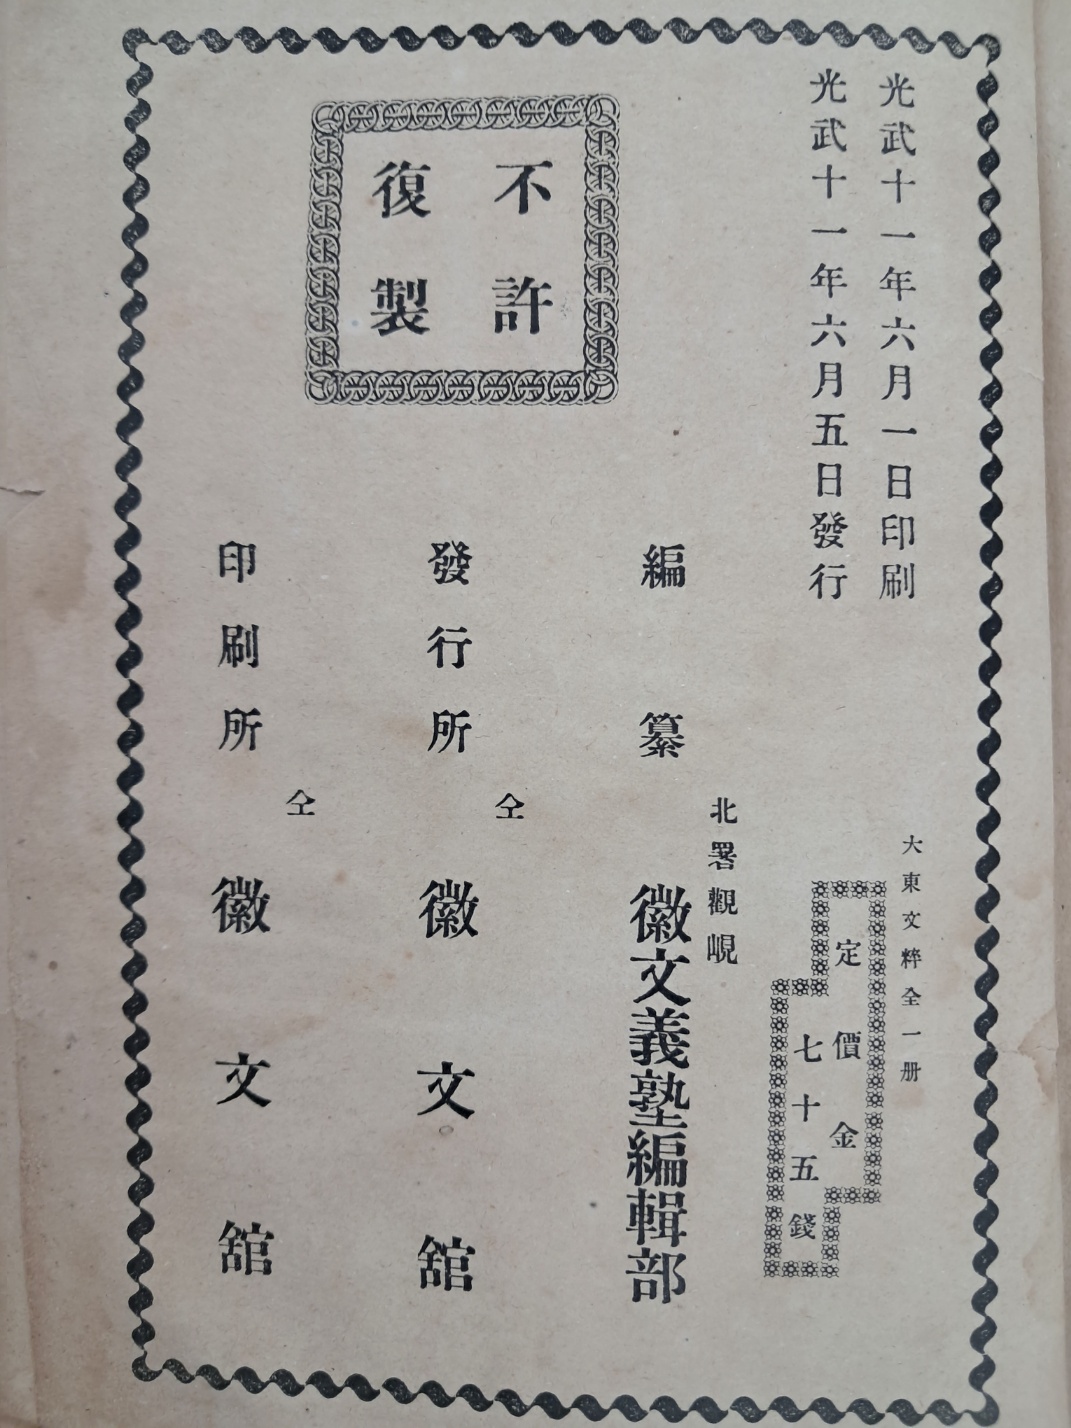 光武十一年六月一日印刷
光武十一年六月五日發行
不許
復製
大東文粹全一册
定價金
七十五錢
北署觀峴
編纂 徽文義塾編輯部
仝
發行所 徽文舘
仝
印刷所 徽文舘